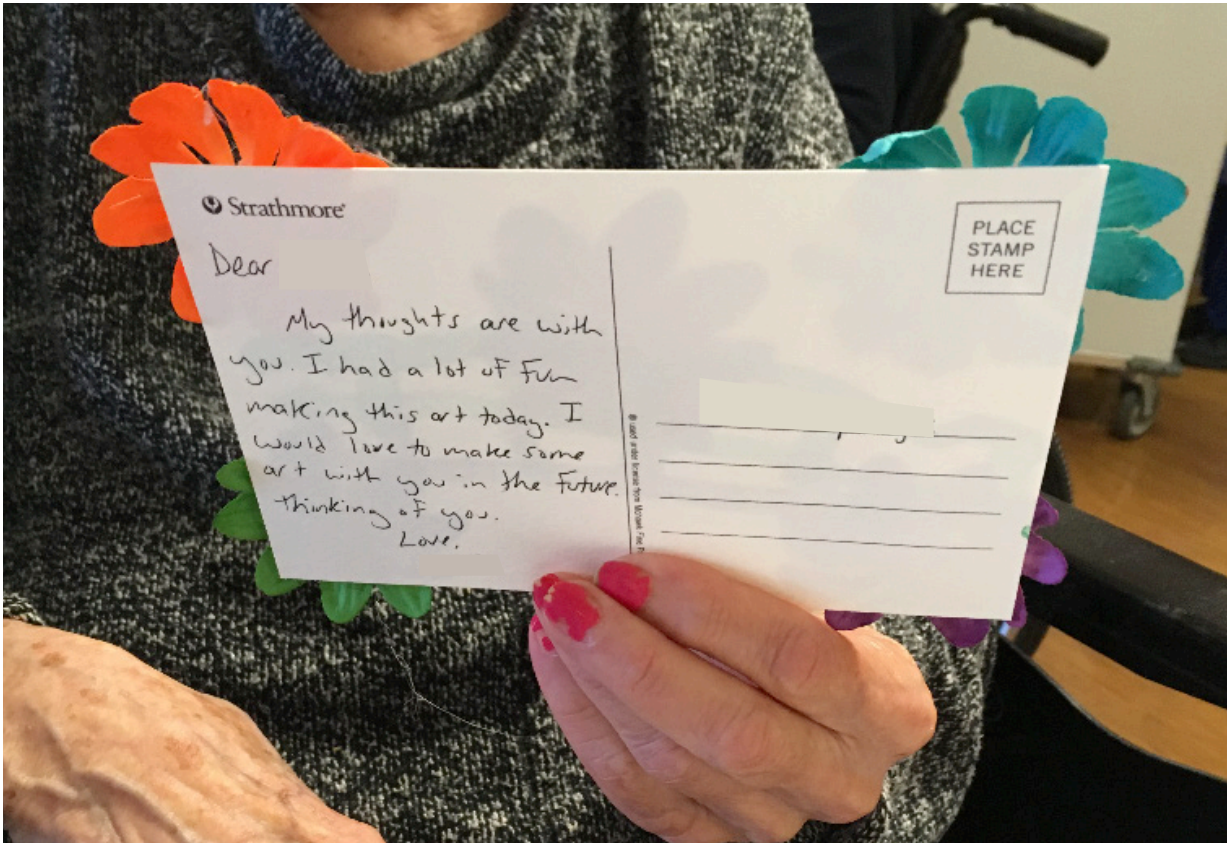 Strathmore®
Dear
My thoughts are with
you. I had a lot of fun
making this art today. I
would love to make some
art with you in the future.
Thinking of you.
Love,
PLACE
STAMP
HERE
® used under license from Mohawk Fine P